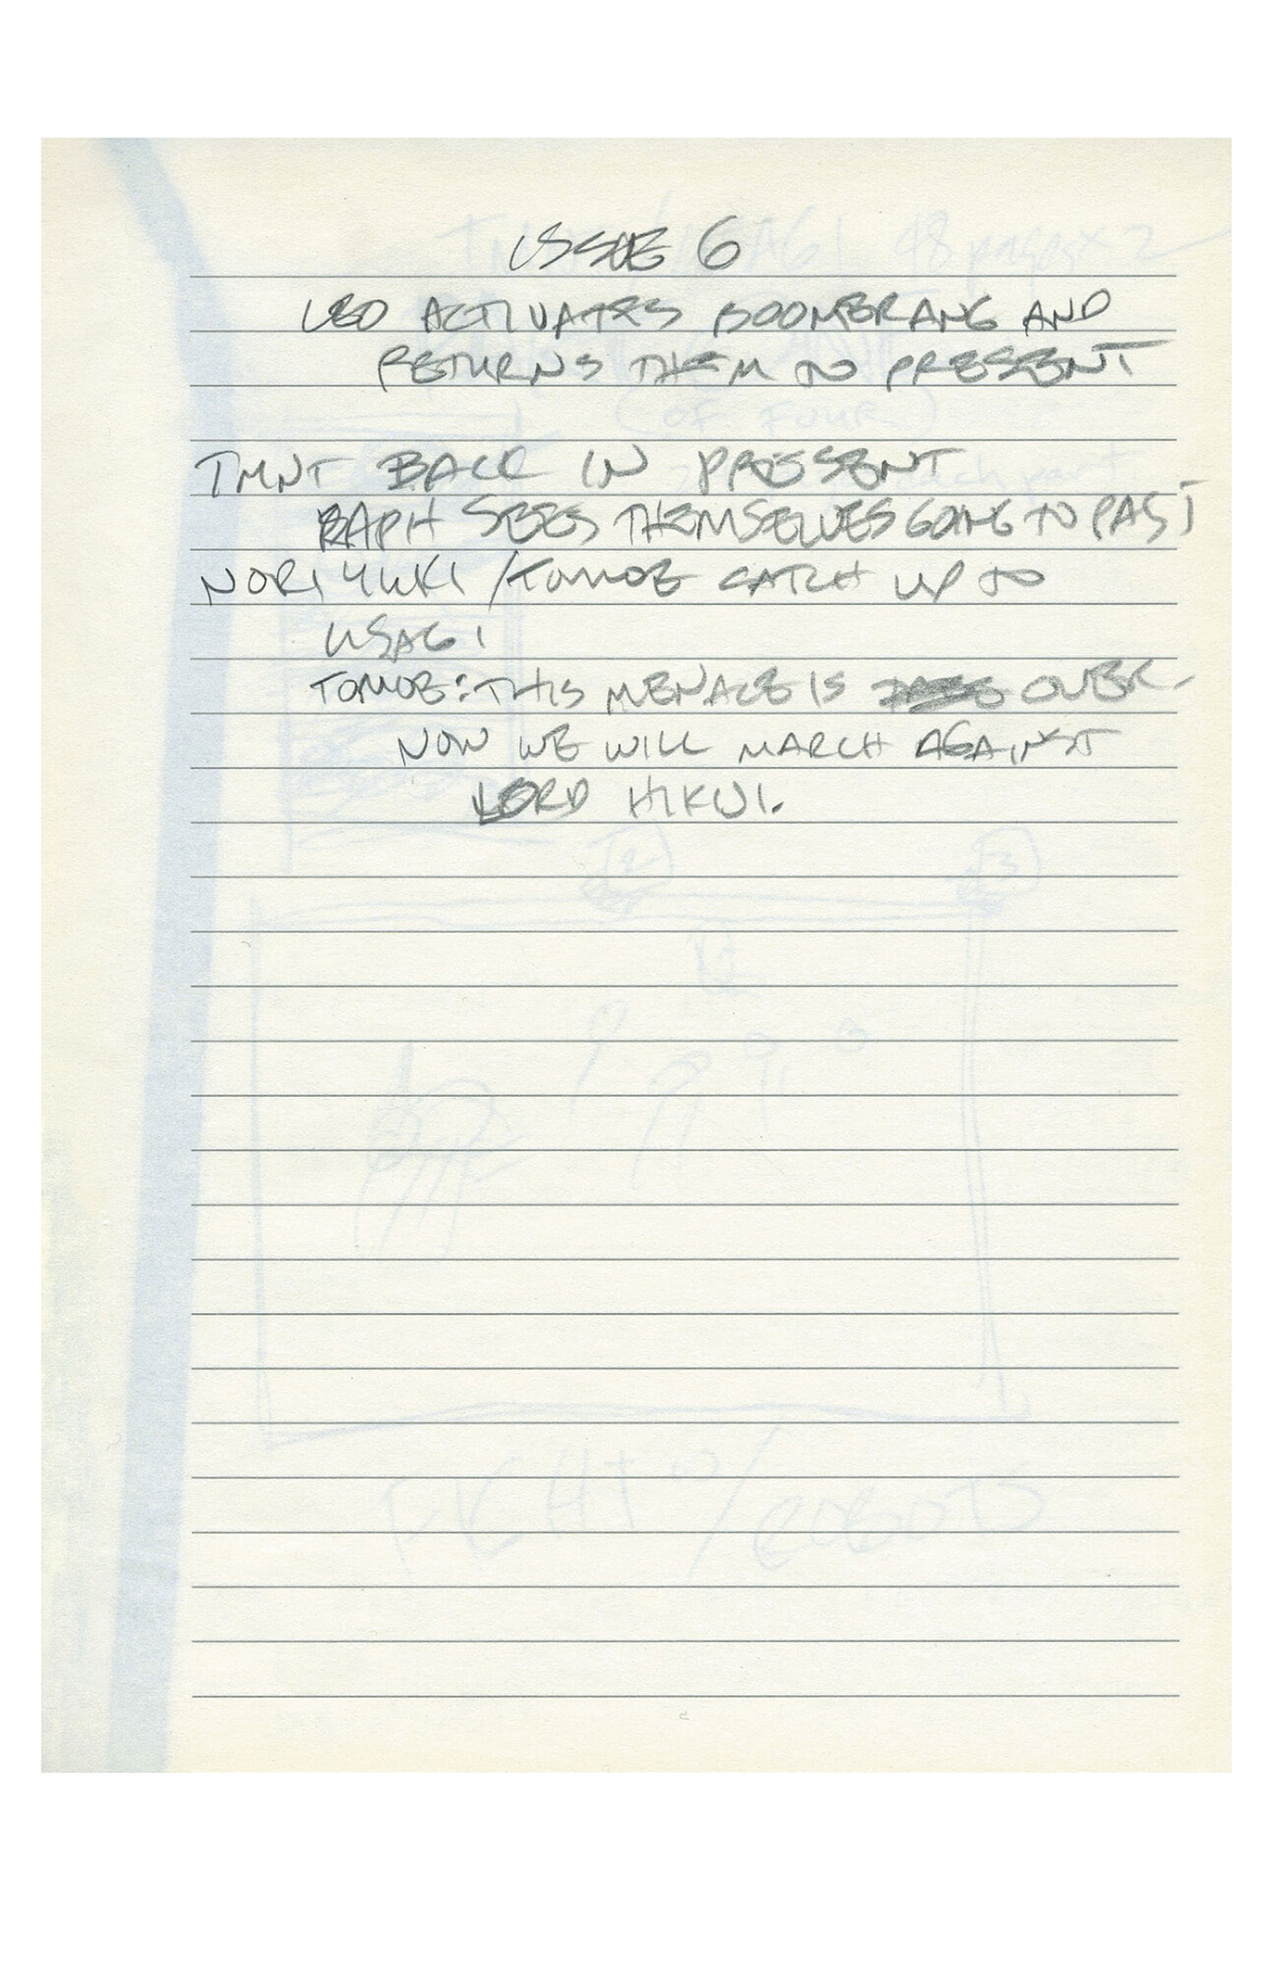 ISSUE 6
LEO ACTIVATES BOOMERANG AND
RETURNS THEM TO PRESENT
TMNT BACK IN PRESENT
RAPH SEES THEMSELVES GOING TO PAST
NORIYUKI/TOMOE CATCH UP TO
USAGI
TOMOE: THIS MENACE IS OVER.
NOW WE WILL MARCH AGAINST
LORD HIKIJI.